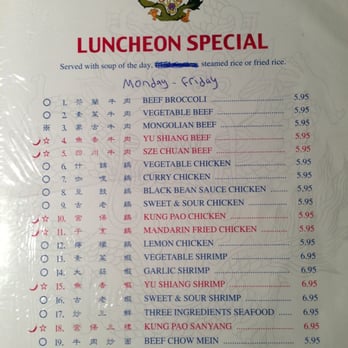 LUNCHEON SPECIAL
Served with soup of the day, steamed rice or fried rice.
Monday - Friday
1. 芥蘭牛肉 BEEF BROCCOLI 5.95
2. 素菜牛肉 VEGETABLE BEEF 5.95
3. 蒙古牛肉 MONGOLIAN BEEF 5.95
4. 魚香牛肉 YU SHIANG BEEF 5.95
5. 四川牛肉 SZE CHUAN BEEF 5.95
6. 什錦雞 VEGETABLE CHICKEN 5.95
7. 咖喱雞 CURRY CHICKEN 5.95
8. 豆豉雞 BLACK BEAN SAUCE CHICKEN 5.95
9. 古老雞 SWEET & SOUR CHICKEN 5.95
10. 宮保雞 KUNG PAO CHICKEN 5.95
11. 干烹雞 MANDARIN FRIED CHICKEN 5.95
12. 檸檬雞 LEMON CHICKEN 5.95
13. 素菜蝦 VEGETABLE SHRIMP 6.95
14. 大蒜蝦 GARLIC SHRIMP 6.95
15. 魚香蝦 YU SHIANG SHRIMP 6.95
16. 古老蝦 SWEET & SOUR SHRIMP 6.95
17. 炒三鮮 THREE INGREDIENTS SEAFOOD 6.95
18. 宮保三樣 KUNG PAO SANYANG 6.95
19. 牛肉炒麵 BEEF CHOW MEIN 5.95